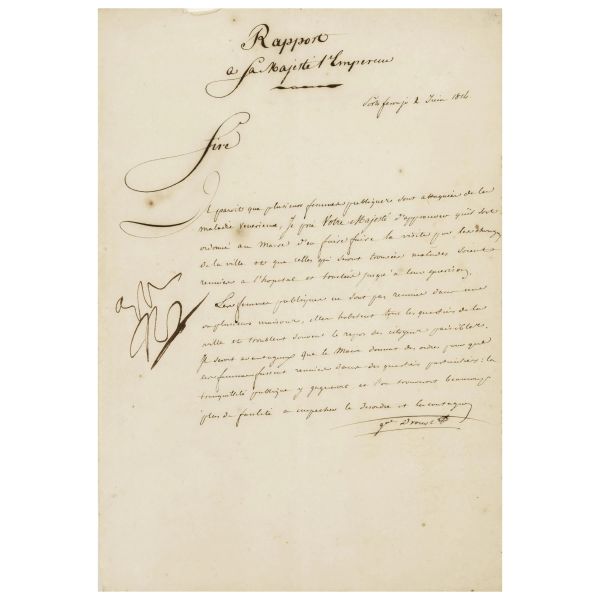 Rapport
a Sa Majesté l'Empereur
Porto ferrajo 2 Juin 1814.
Sire
Il paroit que plusieurs femmes publiques sont attaquées de la
maladie venerienne, Je prie Votre Majesté d'approuver qu'il soit
ordonné au Maire d'en faire faire la visite par les
de la ville et que celles qui seront trouvées malades soient
reunies a l'hopital et traitées jusqu'à leur guerison.
Les femmes publiques ne sont pas reunies dans une
ou plusieurs maisons, elles habitent tous les quartiers de la
ville et troublent souvent le repos des citoyens paisibles.
Il seroit avantageux que le Maire donnat des ordres pour que
ces femmes fussent reunies dans des quartiers particuliers: la
tranquilité publique y gagneroit et l'on trouveroit beaucoup
plus de facilité a empecher le desordre et la contagion
Drouot